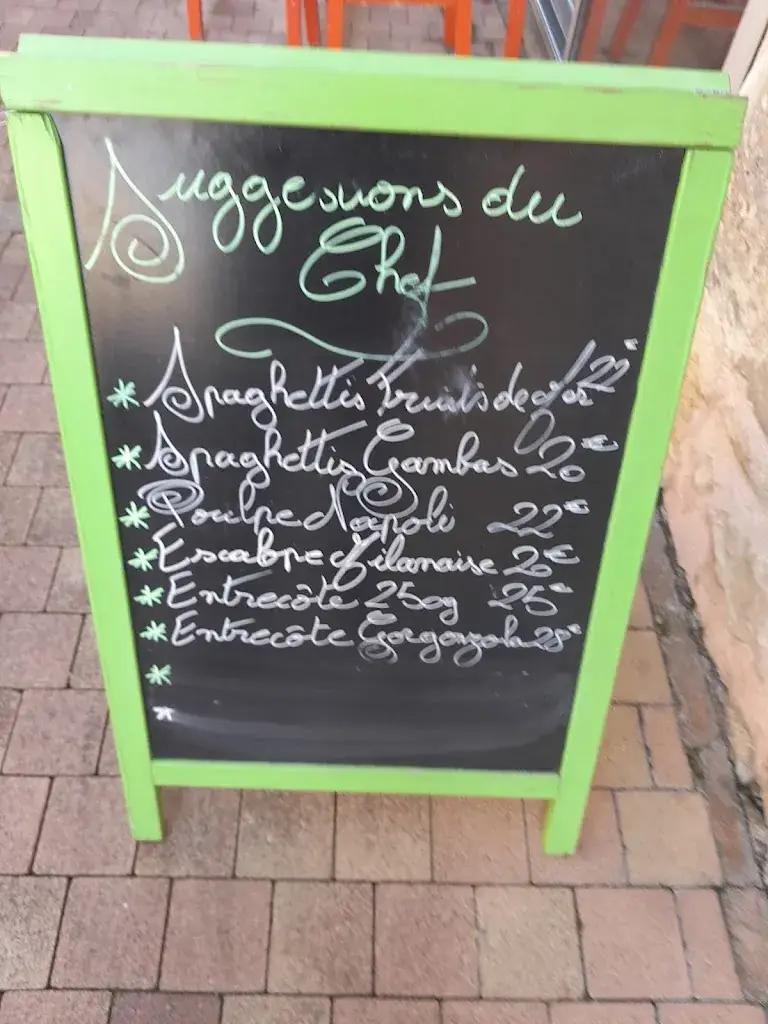 Suggestions du
Chef
* Spaghettis Fruits de Mer 22€
* Spaghettis Gambas 20€
* Poulpe Napoli 22€
* Escalope Milanaise 20€
* Entrecôte 250g 25€
* Entrecôte Gorgonzola 28€
*
*